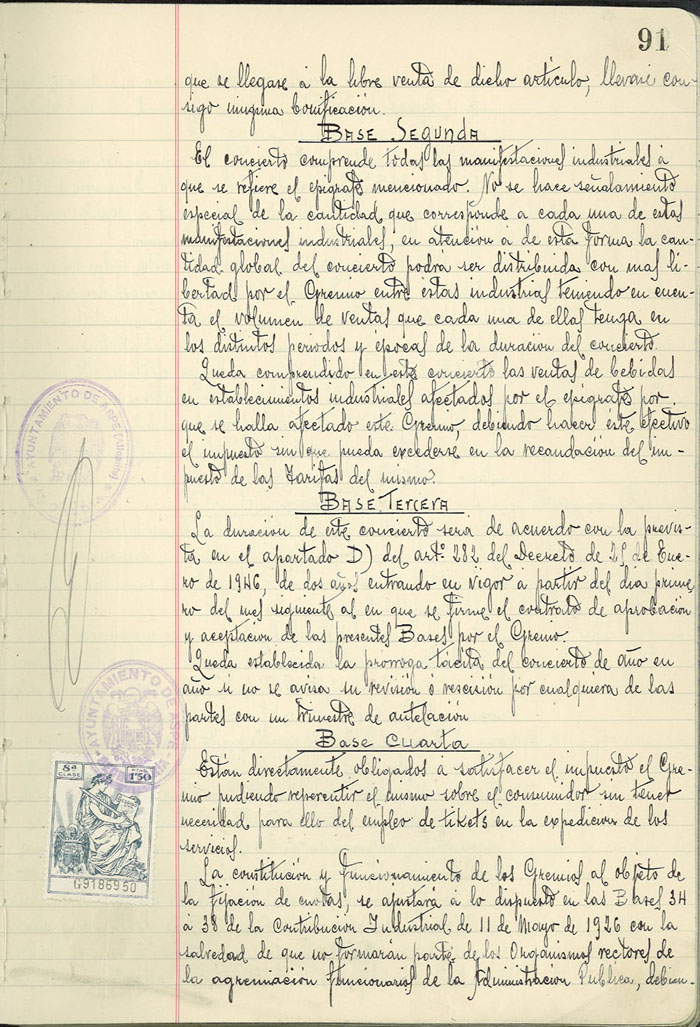 91
que se llegase á la libre venta de dicho artículo, llevase con-
sigo ninguna bonificación.
BASE SEGUNDA
El concierto comprende todas las manifestaciones industriales á
que se refiere el epígrafe mencionado. No se hace señalamiento
especial de la cantidad que corresponde a cada una de estas
manifestaciones industriales, en atención á de esta forma la can-
tidad global del concierto podrá ser distribuida con mas li-
bertad por el Gremio entre estas industrias teniendo en cuen-
ta el volumen de ventas que cada una de ellas tenga en
los distintos periodos y épocas de la duración del concierto.
Queda comprendido en este concierto las ventas de bebidas
en establecimientos industriales afectados por el epígrafe por
que se halla afectado este Gremio, debiendo hacer éste efectivo
el impuesto sin que pueda excederse en la recaudación del im-
puesto de las Tarifas del mismo.
BASE TERCERA
La duración de este concierto será de acuerdo con la previs-
ta en el apartado D) del artº 282 del Decreto de 25 de Ene-
ro de 1946, de dos años entrando en vigor a partir del dia prime-
ro del mes siguiente al en que se firme el contrato de aprobación
y aceptación de las presentes Bases por el Gremio.
Queda establecida la prorroga tácita del concierto de año en
año si no se avisa su revisión ó rescisión por cualquiera de las
partes con un trimestre de antelación
BASE CUARTA
Están directamente obligados á satisfacer el impuesto el Gre-
mio pudiendo repercutir el mismo sobre el consumidor sin tener
necesidad para ello del empleo de tikets en la expedición de los
servicios.
La constitución y funcionamiento de los Gremios al objeto de
la fijación de cuotas, se ajustará á lo dispuesto en las Bases 34
á 38 de la Contribución Industrial de 11 de Mayo de 1926 con la
salvedad de que no formarán parte de los Organismos rectores de
la agremiación funcionarios de la Administración Publica, debien-
AYUNTAMIENTO DE ASPE
AYUNTAMIENTO DE ASPE
8ª CLASE
1'50
G9186950